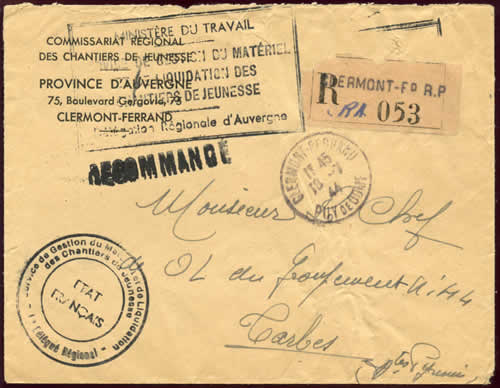 COMMISSARIAT RÉGIONAL
DES CHANTIERS DE JEUNESSE
PROVINCE D'AUVERGNE
75, Boulevard Gergovia, 75
CLERMONT-FERRAND
MINISTÈRE DU TRAVAIL
DE GESTION DU MATÉRIEL
LIQUIDATION DES
CHANTIERS DE JEUNESSE
Délégation Régionale d'Auvergne
R
CLERMONT-Fd R.P
053
RECOMMANDE
CLERMONT-FERRAND
PUY DE DOME
Monsieur le Chef
du Groupement N° 44
Tarbes
Htes Pyrénées
Service de Gestion du Matériel et de Liquidation
des Chantiers de Jeunesse
ETAT
FRANÇAIS
Le Délégué Régional